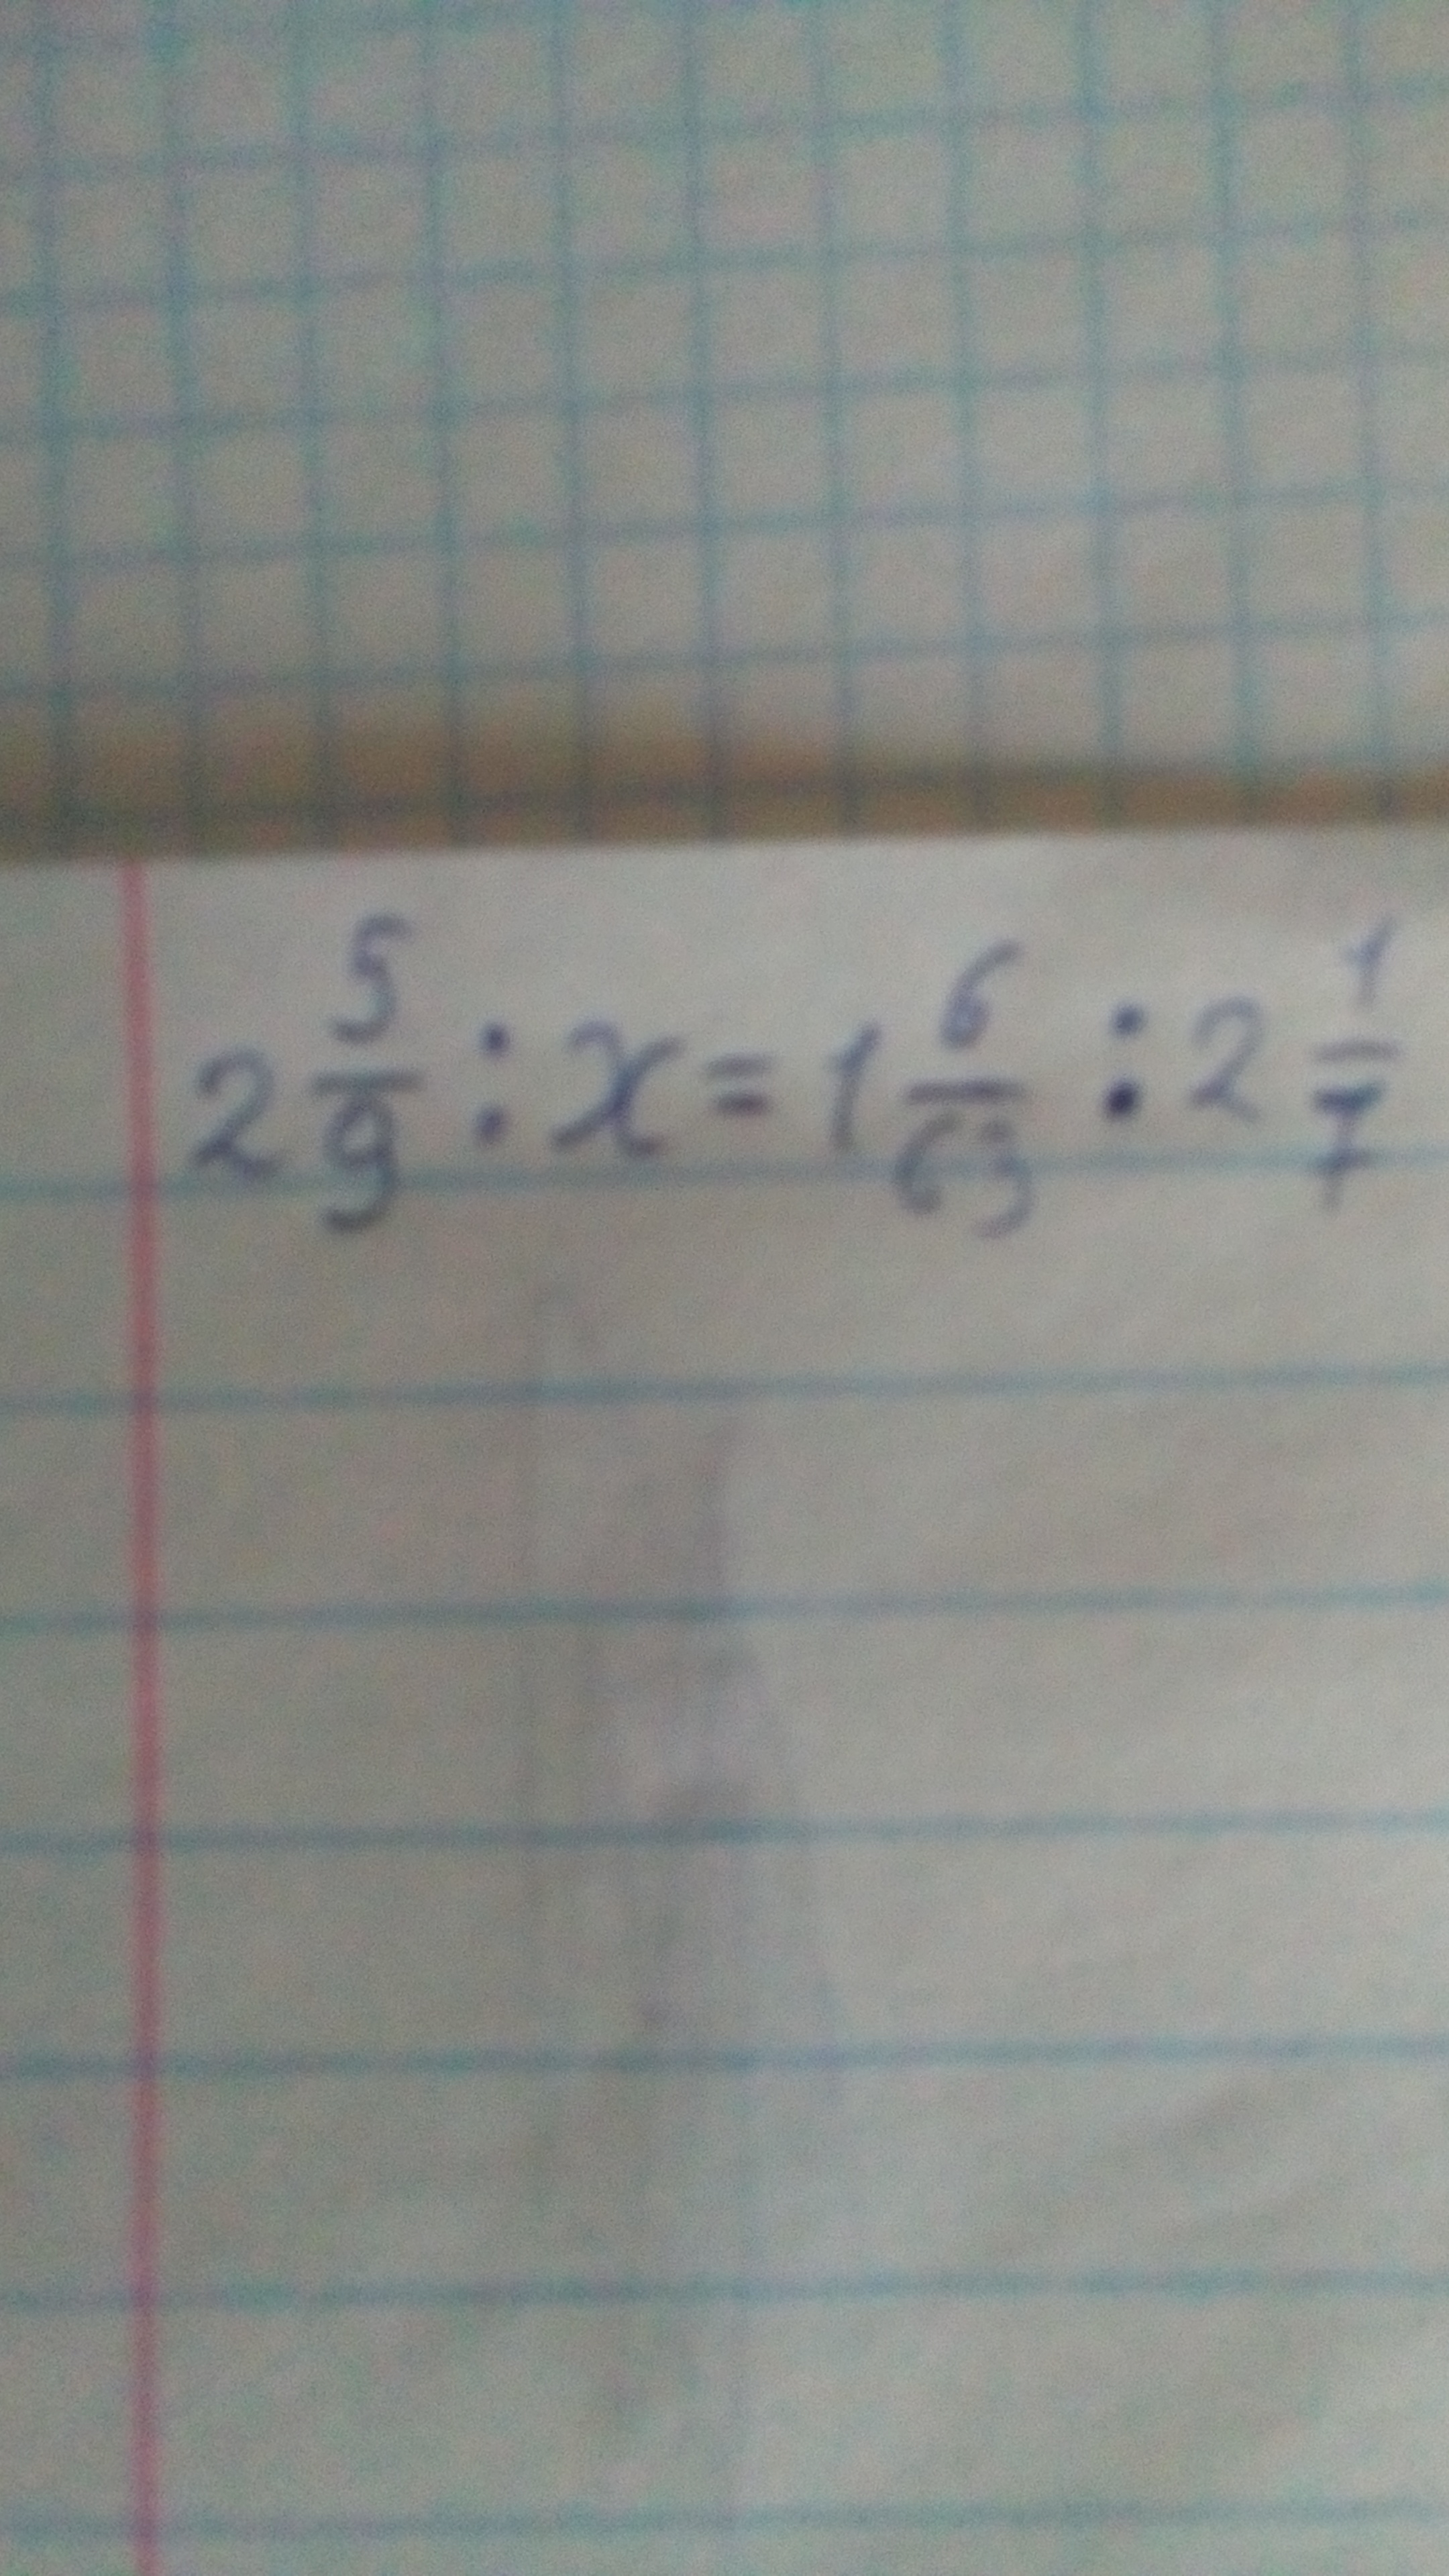 2 5/9 : x = 1 6/69 : 2 1/7